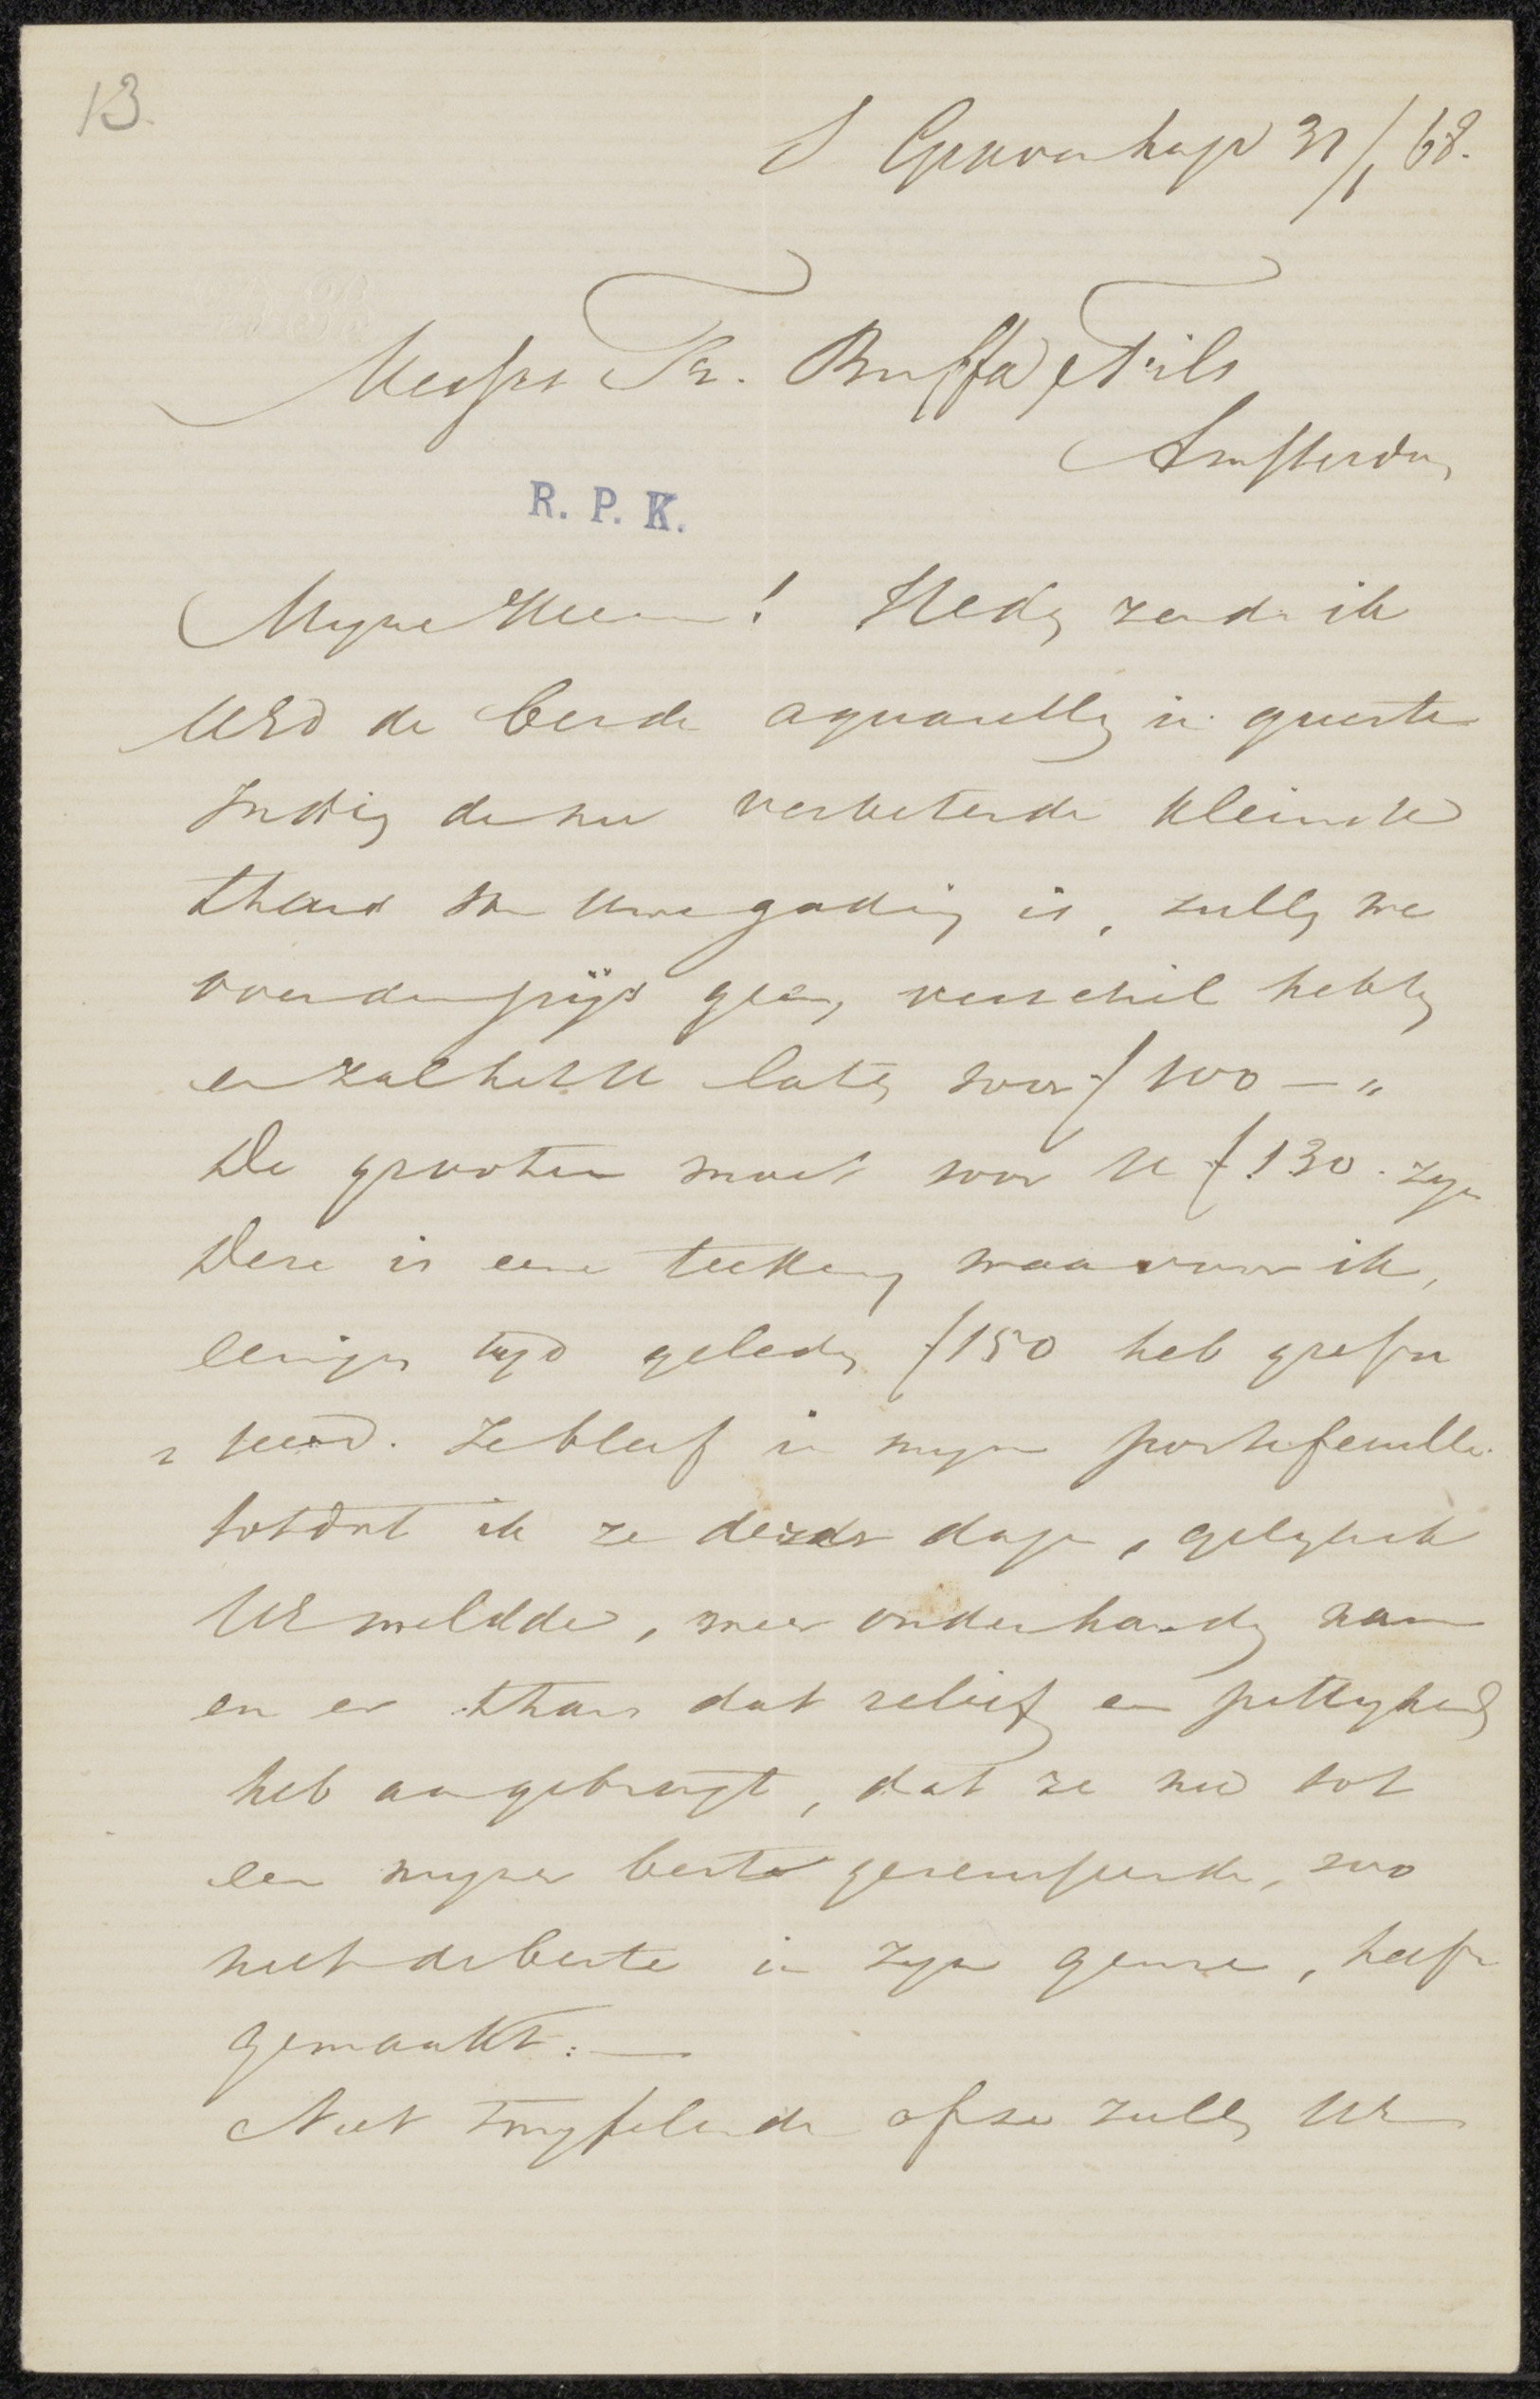 13.
S Gravenhage 31/1 68.
Messrs Fr. Buffa & Fils
Amsterdam
R. P. K.
Myne Heeren! Heden zende ik
UEd de beide aquarellen in questie
Indien de nu verbeterde kleinste
thans van Uwe gading is, zullen we
over den prijs geen verschil hebben
en zal het U laten voor f 100 — "
De grootere moet voor U f 130. zyn
Deze is eene teekening waarvoor ik,
eenigen tyd geleden f 150 heb gref
u seerd. Ze bleef in myne portefeuille
totdat ik ze dezer dagen, gelyk ik
UE meldde, weer onderhanden nam
en er thans dat relief en pittigheid
heb aangebragt, dat ze nu tot
een myner beste gereusseerde, zoo
niet de beste in zyn genre, heeft
gemaakt. —
Niet twyfelende of ze zullen UE